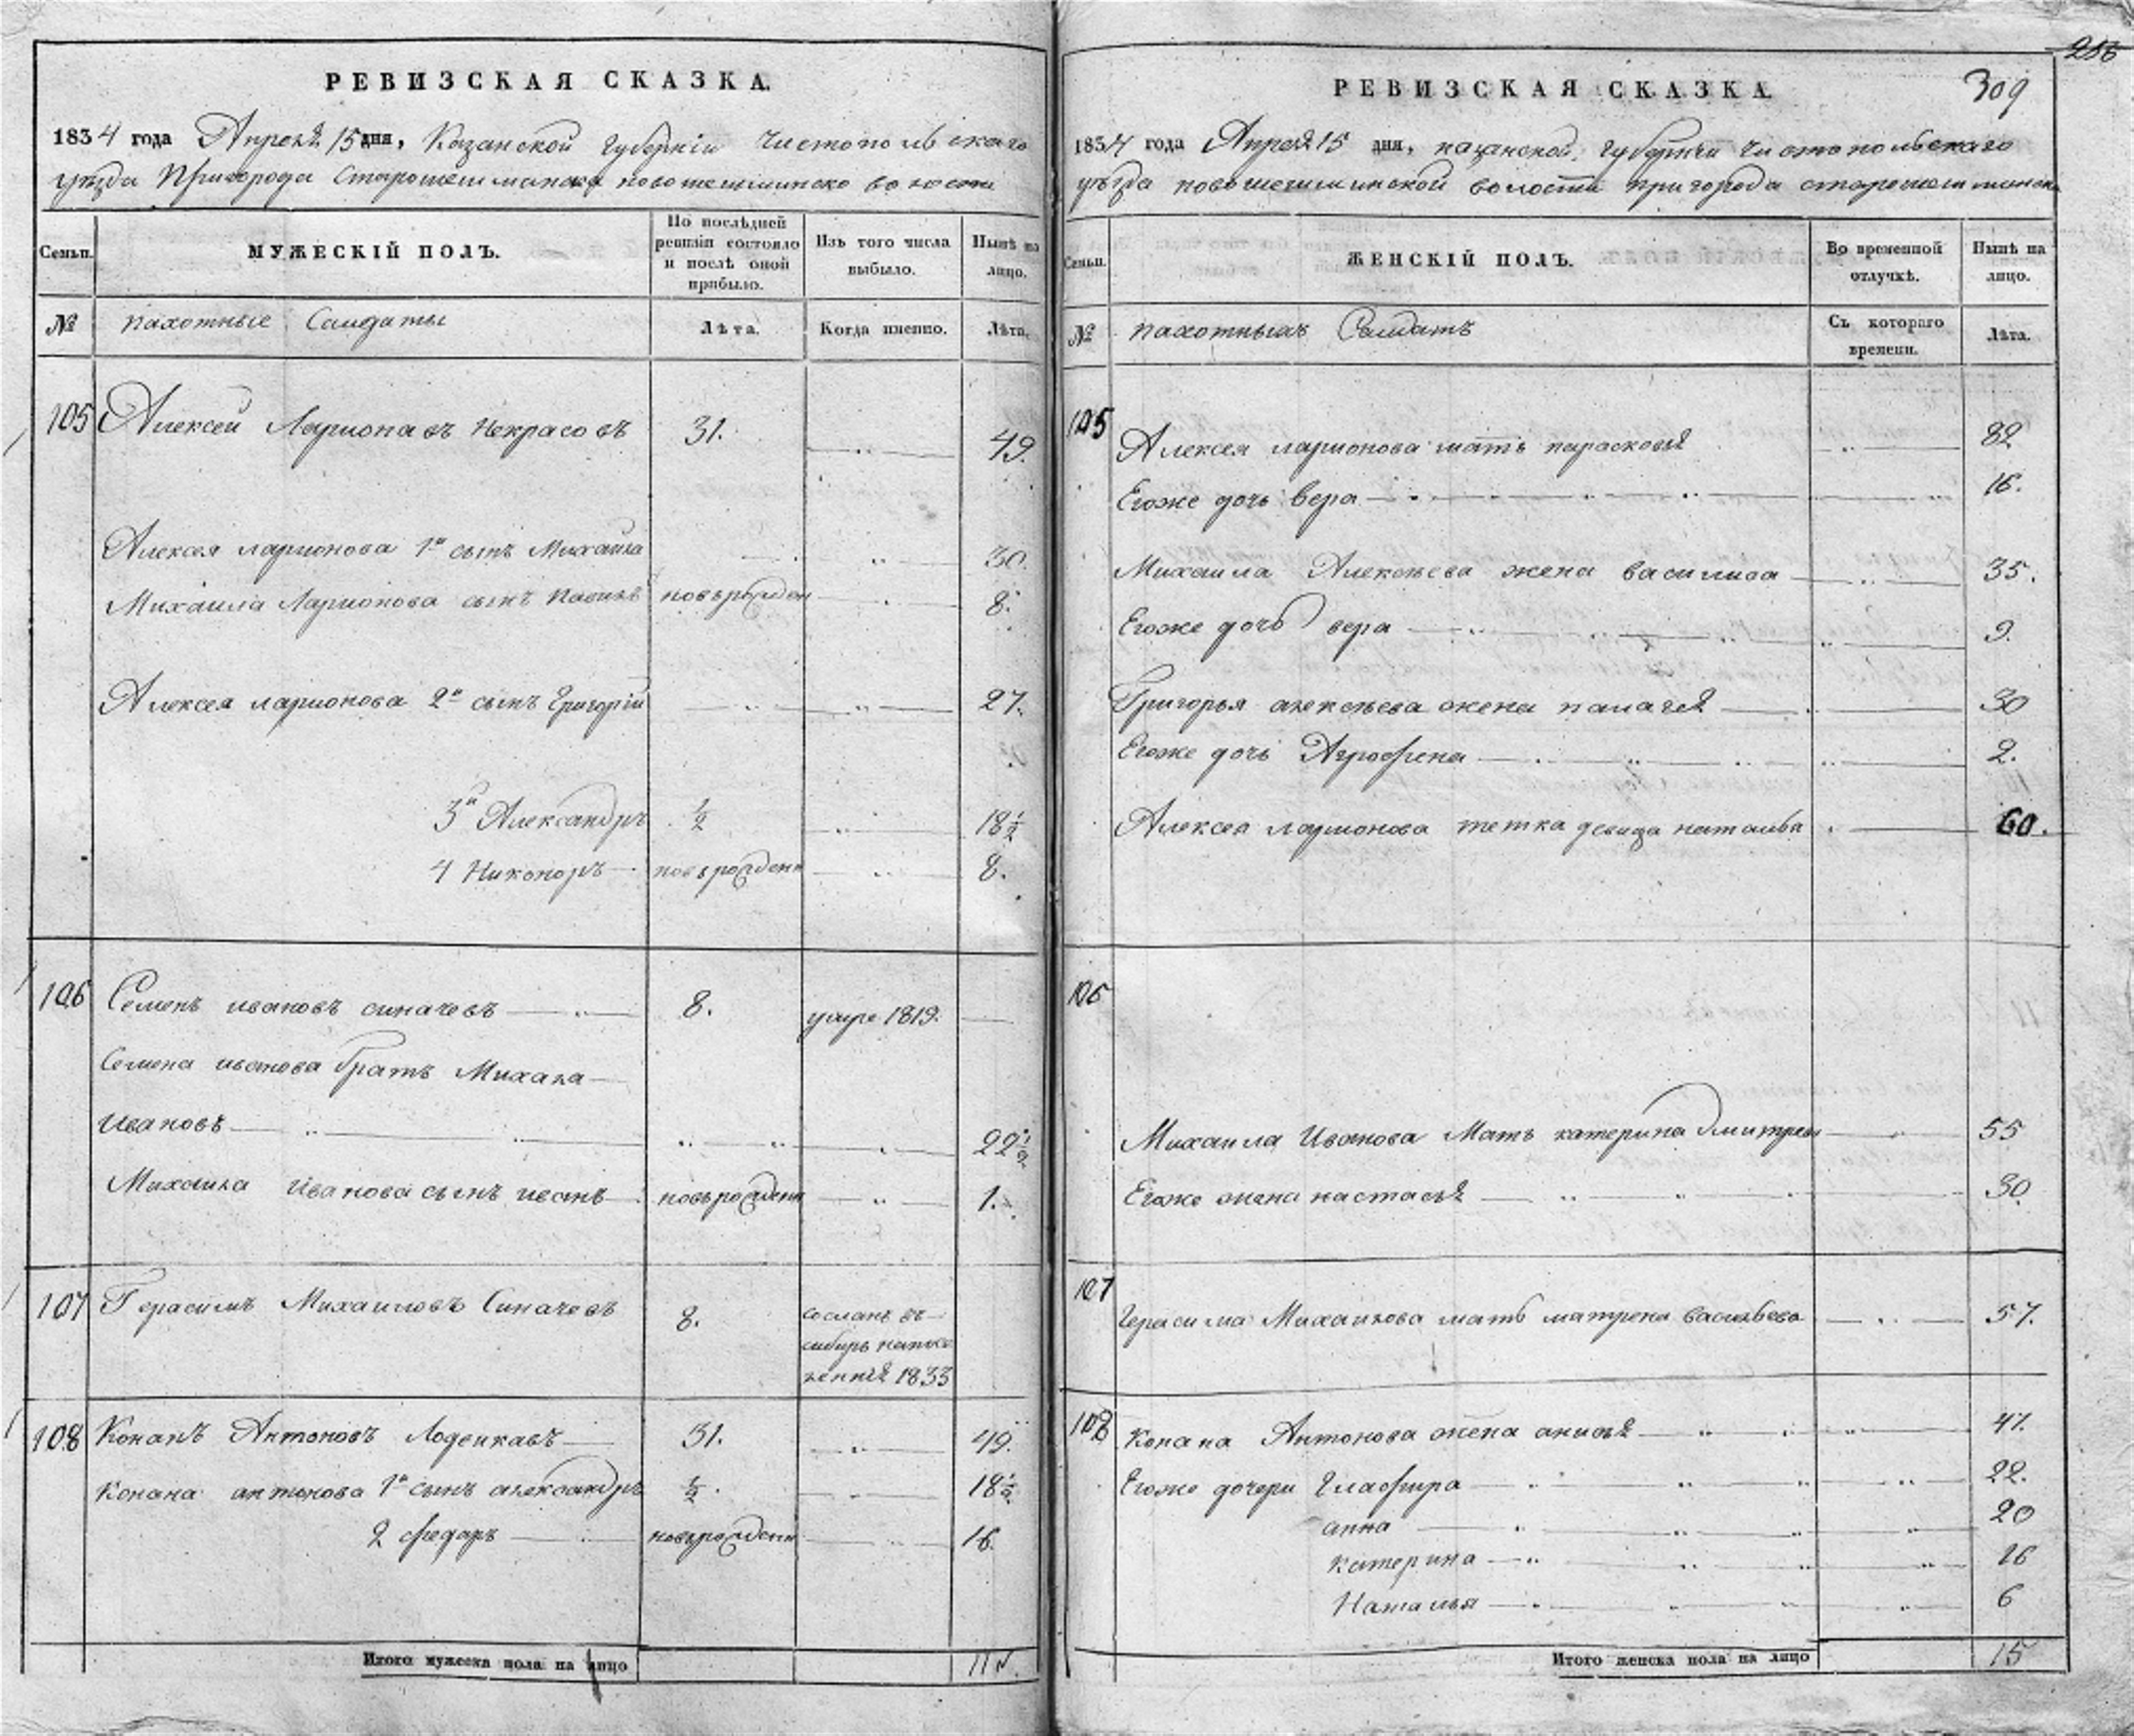 РЕВИЗСКАЯ СКАЗКА.
1834 года Апреля 15 дня, Казанской Губерніи Чистопольскаго
уѣзда Пригорода Старошешминска новошешминско волости
Семьи.
МУЖЕСКІЙ ПОЛЪ.
По послѣдней ревизіи состояло и послѣ оной прибыло.
Изъ того числа выбыло.
Нынѣ на лицо.
№ пахотные Солдаты Лѣта. Когда именно. Лѣта.
105 Алексей Ларионавъ Некрасовъ 31. 49.
Алексея ларионова 1й сынъ Михайла 30.
Михаила Ларионова сынъ новърожден 8.
Алексея ларионова 2й сынъ Григорій 27.
3й Александръ ½ 18½
4 Никоноръ новърожденн 8.
106 Семенъ ивановъ синачевъ 8. умре 1819.
Семена иванова братъ Михаила
Ивановъ 22½
Михаила Иванова сынъ иванъ новърожденн 1.
107 Герасимъ Михаиловъ Синачевъ 8. сосланъ въ
сибирь напосе
ления 1833
108 Конанъ Антоновъ Лоденкавъ 31. 49.
Конана антонова 1й сынъ александръ ½. 18½
2 федаръ новърожденн 16.
Итого мужеска пола на лицо 11
286
РЕВИЗСКАЯ СКАЗКА.
309
1834 года Апреля 15 дня, казанской Губерніи Чистопольскаго
уѣзда новошешминской волости пригорода старошешминска
Семьи.
ЖЕНСКІЙ ПОЛЪ.
Во временной отлучкѣ.
Нынѣ на лицо.
№ пахотныхъ Солдатъ Съ котораго времени. Лѣта.
105 Алексея ларионова мать парасковья 82
Егоже дочь Вера 16.
Михаила Алексѣева жена василиса 35.
Егоже дочь вера 9.
Григорья алексѣева жена палагея 30
Егоже дочь Агрофена 2.
Алексея ларионова тетка девица наталья 60.
106
Михаила Иванова Мать катерина Дмитрева 55
Егоже жена настасья 30.
107 Герасима Михаилова мать матрена васильева 57.
108 Конана Антонова жена анисья 47.
Егоже дочери Глафира 22.
анна 20
Катерина 16
Наталья 6
Итого женска пола на лицо 15